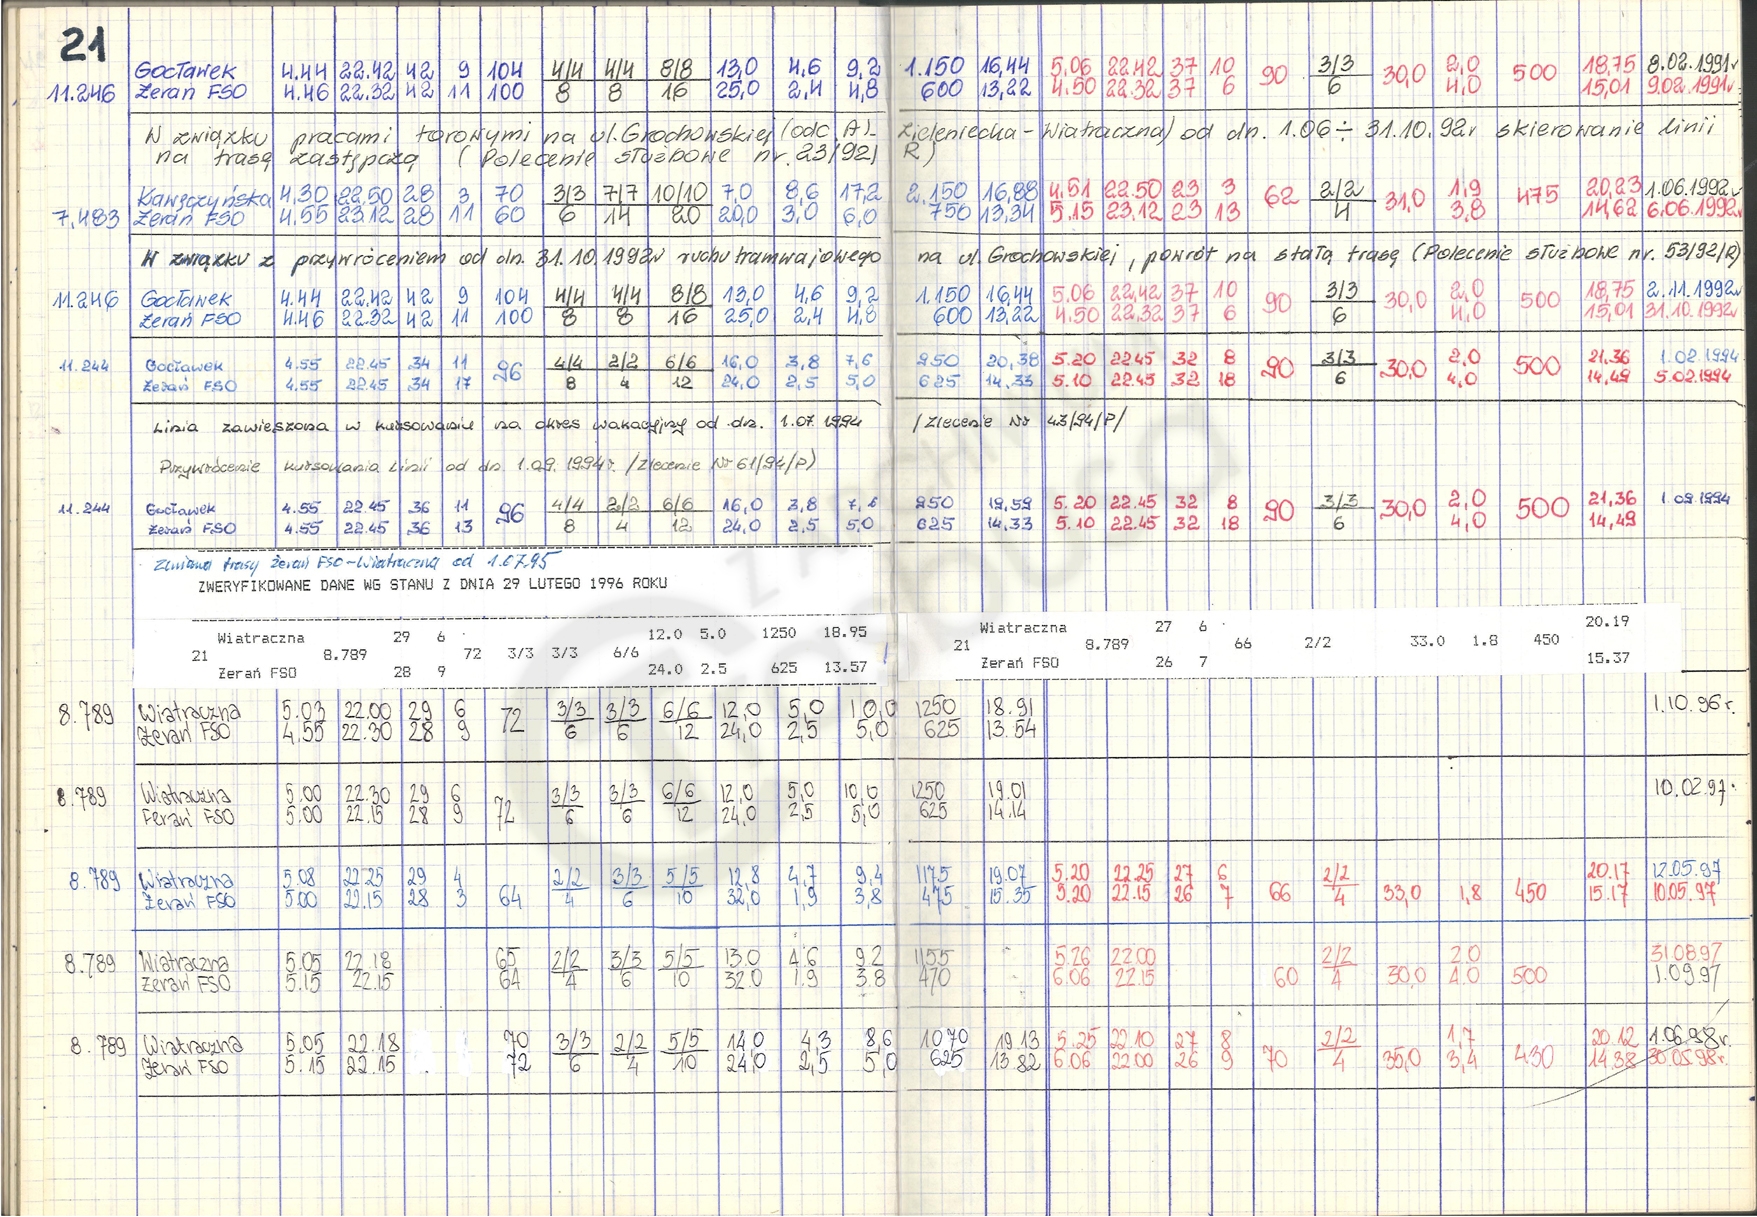 21
Gocławek 4.44 22.42 42 9 104 4/4 4/4 8/8 13,0 4,6 9,2 1.150 16,44 5,06 22.42 37 10 90 3/3 30,0 2,0 500 18,75 8.02.1991r
11.246 Żerań FSO 4.46 22.32 42 11 100 8 8 16 25,0 2,4 4,8 600 13,22 4.50 22.32 37 6 6 4,0 15,01 9.02.1991r
W związku pracami torowymi na ul. Grochowskiej (odc. A)- Zieleniecka - Wiatraczna) od dn. 1.06 ÷ 31.10.92r skierowanie linii
na trasę zastępczą (Polecenie służbowe nr. 23/92/ R)
Kawęczyńska 4,30 22.50 28 3 70 3/3 7/7 10/10 7,0 8,6 17,2 2.150 16,88 4.51 22.50 23 3 62 2/2 31,0 1,9 475 20,23 1.06.1992r
7,483 Żerań FSO 4,55 23.12 28 11 60 6 14 20 20,0 3,0 6,0 750 13,34 5.15 23.12 23 13 4 3,8 14,62 6.06.1992r
W związku z przywróceniem od dn. 31.10.1992r ruchu tramwajowego na ul. Grochowskiej, powrót na stałą trasę (Polecenie służbowe nr. 53/92/R)
11.246 Gocławek 4.44 22.42 42 9 104 4/4 4/4 8/8 13,0 4,6 9,2 1.150 16,44 5,06 22,42 37 10 90 3/3 30,0 2,0 500 18,75 2.11.1992r
Żerań FSO 4.46 22.32 42 11 100 8 8 16 25,0 2,4 4,8 600 13,22 4.50 22,32 37 6 6 4,0 15,01 31.10.1992r
11.244 Gocławek 4.55 22.45 34 11 96 4/4 2/2 6/6 16,0 3,8 7,6 950 20,38 5.20 22.45 32 8 90 3/3 30,0 2,0 500 21,36 1.02.1994
Żerań FSO 4.55 22.45 34 17 8 4 12 24,0 2,5 5,0 625 14,33 5.10 22.45 32 18 6 4,0 14,49 5.02.1994
Linia zawieszona w kursowaniu na okres wakacyjny od dn. 1.07.1994 /Zlecenie Nr 43/94/P/
Przywrócenie kursowania linii od dn. 1.09.1994r. /Zlecenie Nr 61/94/P)
11.244 Gocławek 4.55 22.45 36 11 96 4/4 2/2 6/6 16,0 3,8 7,6 950 19,59 5.20 22.45 32 8 90 3/3 30,0 2,0 500 21,36 1.09.1994
Żerań FSO 4.55 22.45 36 13 8 4 12 24,0 2,5 5,0 625 14,33 5.10 22.45 32 18 6 4,0 14,49
Zmiana trasy Żerań FSO - Wiatraczna od 1.07.95
ZWERYFIKOWANE DANE WG STANU Z DNIA 29 LUTEGO 1996 ROKU
Wiatraczna 29 6 12.0 5.0 1250 18.95 Wiatraczna 27 6 20.19
21 8.789 72 3/3 3/3 6/6 21 8.789 66 2/2 33.0 1.8 450
Żerań FSO 28 9 24.0 2.5 625 13.57 Żerań FSO 26 7 15.37
8.789 Wiatraczna 5.03 22.00 29 6 72 3/3 3/3 6/6 12,0 5,0 10,0 1250 18.91 1.10.96r.
Żerań FSO 4.55 22.30 28 9 6 6 12 24,0 2,5 5,0 625 13.54
8.789 Wiatraczna 5.00 22.30 29 6 72 3/3 3/3 6/6 12,0 5,0 10,0 1250 19.01 10.02.97.
Żerań FSO 5.00 22.15 28 9 6 6 12 24,0 2,5 5,0 625 14.14
8.789 Wiatraczna 5.08 22.25 29 4 64 2/2 3/3 5/5 12,8 4,7 9,4 1175 19.07 5.20 22.25 27 6 66 2/2 33,0 1,8 450 20.17 12.05.97
Żerań FSO 5.00 22.15 28 3 4 6 10 32,0 1,9 3,8 475 15.35 5.20 22.15 26 7 4 15.17 10.05.97
8.789 Wiatraczna 5.05 22.18 65 2/2 3/3 5/5 13.0 4.6 9.2 1155 5.26 22.00 60 2/2 30,0 2.0 500 31.08.97
Żerań FSO 5.15 22.15 64 4 6 10 32.0 1.9 3.8 470 6.06 22.15 4 4.0 1.09.97
8.789 Wiatraczna 5.05 22.18 70 3/3 2/2 5/5 14,0 4,3 8,6 1070 19.13 5.25 22.10 27 8 70 2/2 35,0 1,7 430 20.12 1.06.98r.
Żerań FSO 5.15 22.15 72 6 4 10 24,0 2,5 5,0 625 13.82 6.06 22.00 26 9 4 3,4 14.38 30.05.98r.